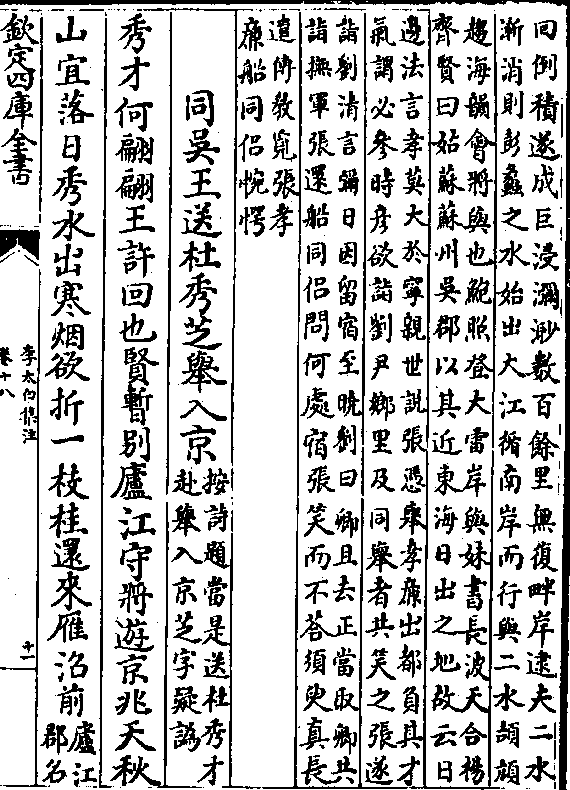 回倒積遂成巨浸瀰渺數百餘里無復畔岸逮夫二水
漸消則彭蠡之水始出大江循南岸而行與二水頡頏
趨海韻會將與也鮑照登大雷岸與妹書長波天合楊
齊賢曰姑蘇蘇州吳郡以其近東海日出之地故云日
邊法言孝莫大於寧親世說張憑舉孝廉出都負其才
氣謂必參時彥欲詣劉尹鄉里及同舉者共笑之張遂
詣劉清言彌日因留宿至曉劉曰卿且去正當取卿共
詣撫軍張還船同侣問何處宿張笑而不荅須臾真長
遣傳教覓張孝
廉船同侣惋愕
同吳王送杜秀芝舉入京
按詩題當是送杜秀才
赴舉入京芝字疑譌
秀才何翩翩王許回也賢暫別廬江守將遊京兆天秋
山宜落日秀水出寒烟欲折一枝桂還來雁沼前
廬江
郡名
欽定四庫全書
李太白集注
卷十八
十一